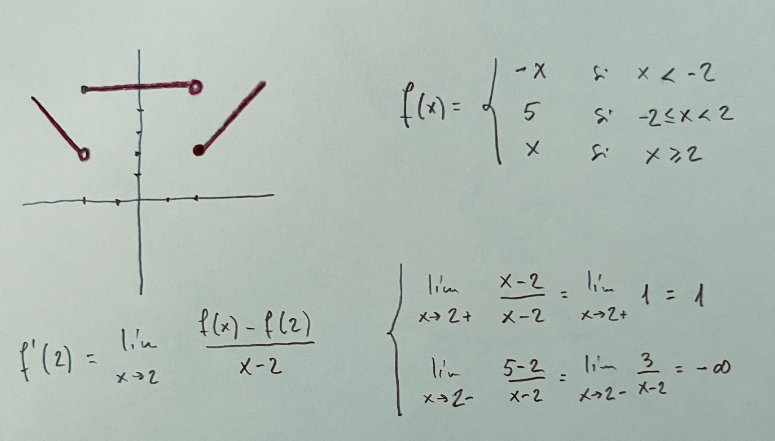 f(x) = { -x si x < -2
5 si -2 ≤ x < 2
x si x ≥ 2
f'(2) = lim x→2 (f(x) - f(2))/(x-2)
{ lim x→2+ (x-2)/(x-2) = lim x→2+ 1 = 1
lim x→2- (5-2)/(x-2) = lim x→2- 3/(x-2) = -∞